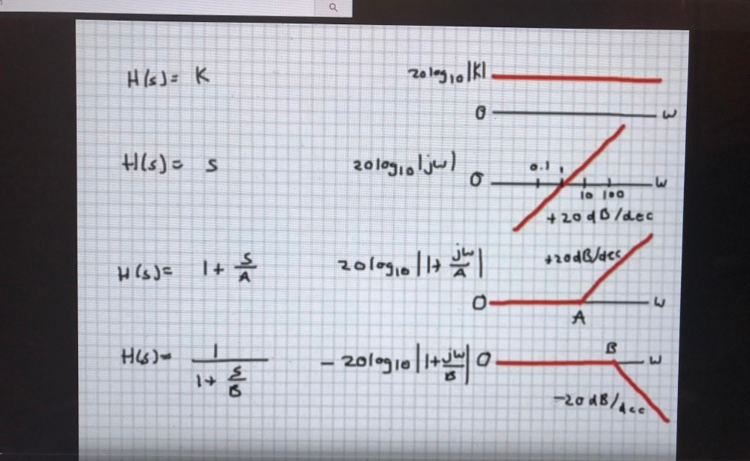 H(s) = K 20log₁₀|K|
0 ω
H(s) = s 20log₁₀|jω| 0.1 1
0 10 100 ω
+20dB/dec
H(s) = 1 + s/A 20log₁₀|1 + jω/A| +20dB/dec
0 ω
A
H(s) = 1/(1 + s/B) -20log₁₀|1 + jω/B| 0 B ω
-20dB/dec